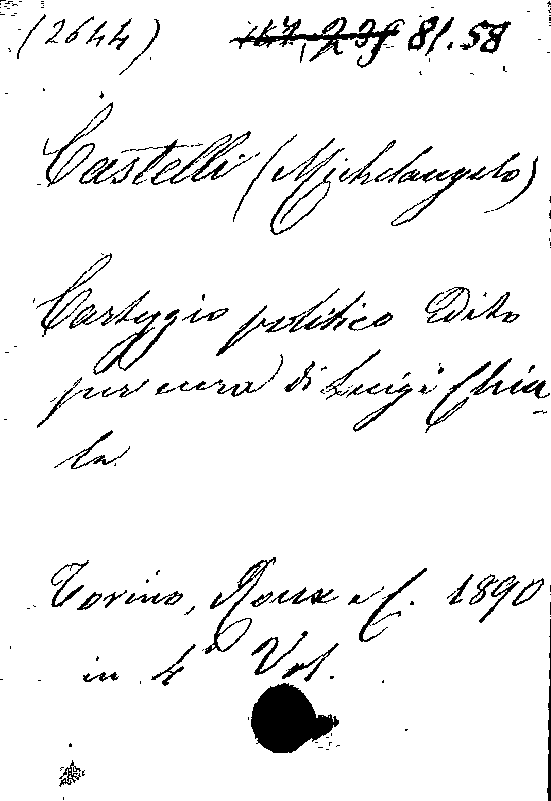 (2644) 81.58
Castelli (Michelangelo)
Carteggio politico Edito
per cura di Luigi Chia-
la
Torino, Roux e C. 1890
in 4° Vol.